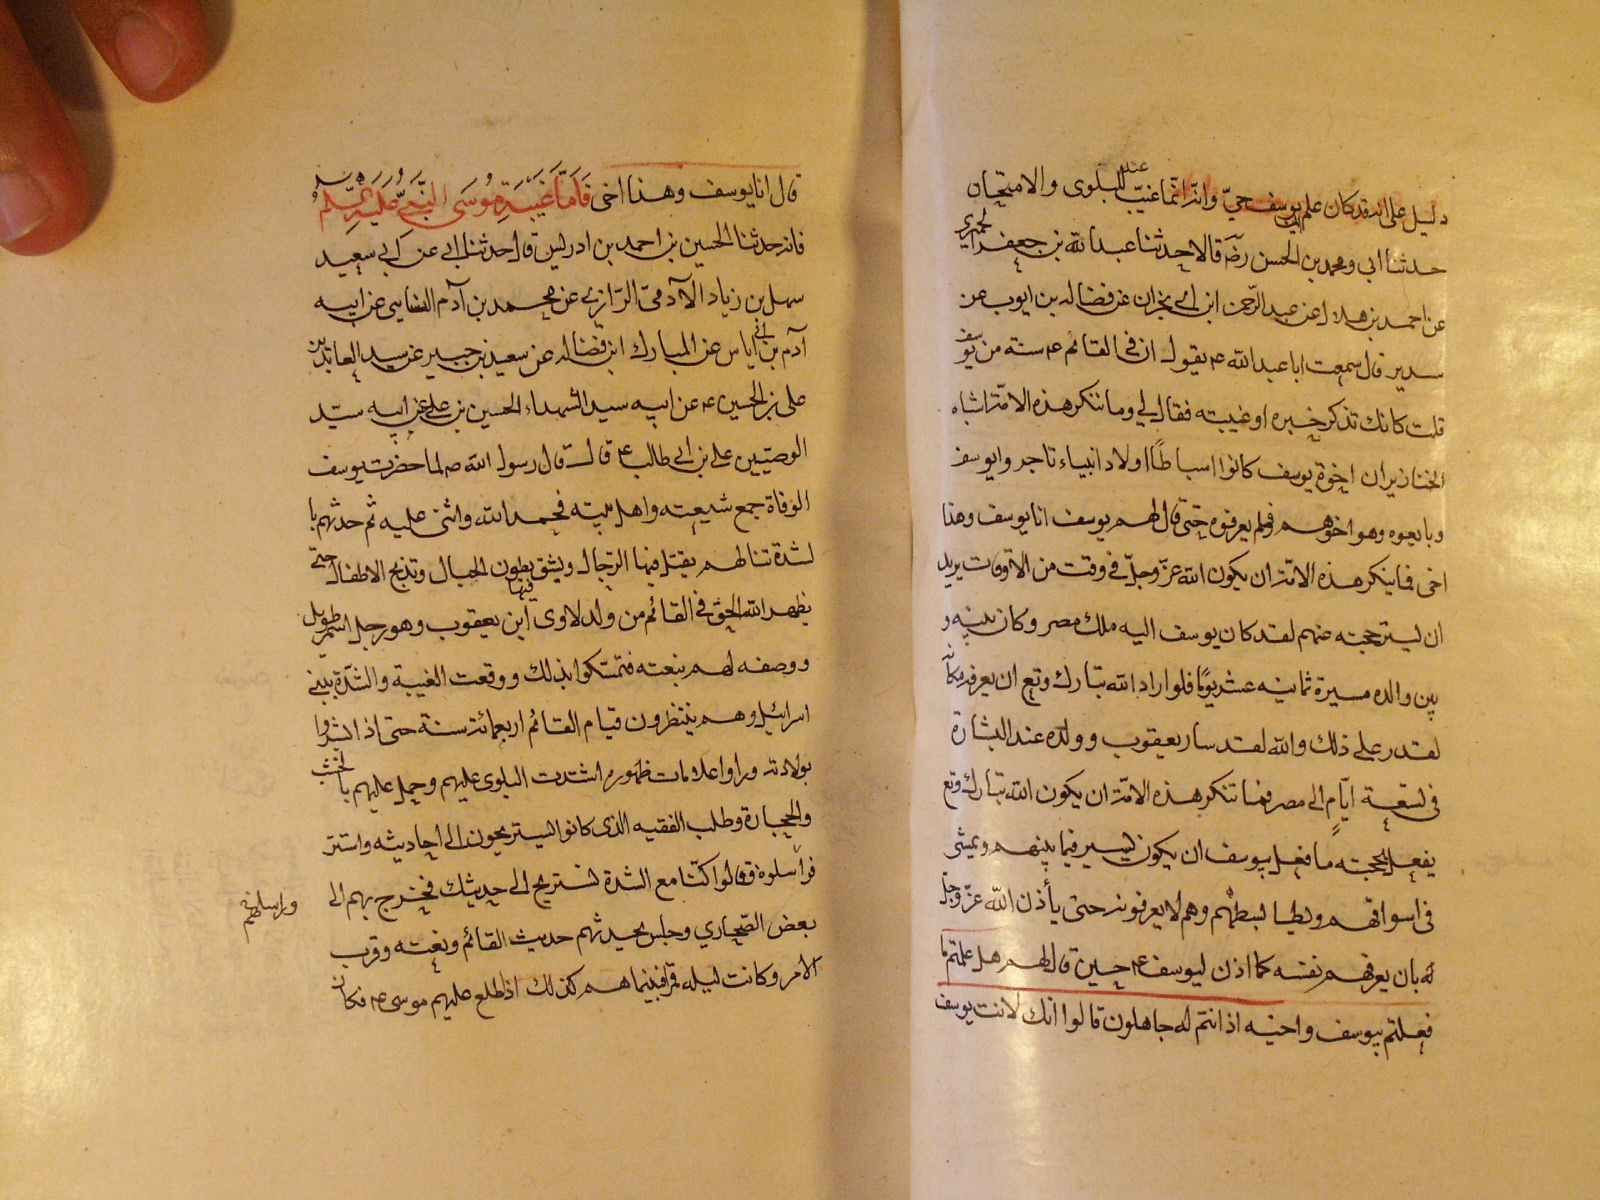 دليل على انه قد كان علم ان يوسف حيّ وانه انما غيّب عنه للبلوى والامتحان
حدثنا ابى ومحمد بن الحسن رضه قالا حدثنا عبد الله بن جعفر الحميرى
عن احمد بن هلال عن عبد الرحمن ابن ابي نجران عن فضاله بن ايوب عن
سدير قال سمعت ابا عبد الله ع يقول ان في القائم ع سنة من يوسف
قلت كانك تذكر خبره او غيبته فقال لي وما تنكر هذه الامة اشباه
الخنازير ان اخوة يوسف كانوا اسباطًا اولاد انبياء تاجروا يوسف
وبايعوه وهو اخوهم فلم يعرفوه حتى قال لهم يوسف انا يوسف وهذا
اخى فما ينكر هذه الامة ان يكون الله عز وجل في وقت من الاوقات يريد
ان يستر حجته عنهم لقد كان يوسف اليه ملك مصر وكان بينه و
بين والده مسيرة ثمانيه عشر يومًا فلو اراد الله تبارك وتع ان يعرفه مكانه
لقدر على ذلك والله لقد سار يعقوب وولده عند البشارة
فى تسعة ايّام الى مصر فما تنكر هذه الامة ان يكون الله تبارك وتع
يفعل بحجته ما فعل بيوسف ان يكون يسير فيما بينهم ويمشى
فى اسواقهم ويطا بسطهم وهم لا يعرفونه حتى يأذن الله عز وجل
له بان يعرفهم نفسه كما اذن ليوسف ع حين قال لهم هل علمتم ما
فعلتم بيوسف واخيه اذ انتم له جاهلون قالوا انك لانت يوسف
قال انا يوسف وهذا اخى فَاَمّا غَيْبَةِ مُوسَى النَّبِيّ عَلَيْهِ السَّلم
فانه حدثنا الحسين بن احمد بن ادريس قال حدثنا ابي عن ابي سعيد
سهل بن زياد الآدمىّ الرّازي عن محمد بن آدم النسايى عن ابيه
آدم بن ابي اياس عن المبارك ابن فضاله عن سعيد بن جبير عن سيد العابدين
على بن الحسين ع عن ابيه سيد الشهداء الحسين بن علي عن ابيه سيّد
الوصيّين علي بن ابي طالب ع قال قال رسول الله ص لما حضرت يوسف
الوفاة جمع شيعته واهل بيته فحمد الله واثنى عليه ثم حدثهم با
لشدة تنالهم يقتل فيها الرجال ويشق فيها بطون الحبال وتذبح الاطفال حتى
يظهر الله الحق في القائم من ولد لاوى ابن يعقوب وهو رجل اسمر طويل
ووصفه لهم بنعته فتمسكوا بذلك ووقعت الغيبة والشدّة ببني
اسرائيل وهم ينتظرون قيام القائم اربعمائة سنة حتى اذا بشروا
بولادته وراوا علامات ظهوره اشتدت البلوى عليهم وحمل عليهم بالخشب
والحجارة وطلب الفقيه الذى كانوا يستريحون الى احاديثه واستتر
فراسلوه وقالوا كنّا مع الشدة نستريح الى حديثك فخرج بهم الى
بعض الصّحاري وجلس يحدثهم حديث القائم ونعته وقرب
الامر وكانت ليله قمراء فبينما هم كذلك اذ طلع عليهم موسى ع فكان
وراسلهم